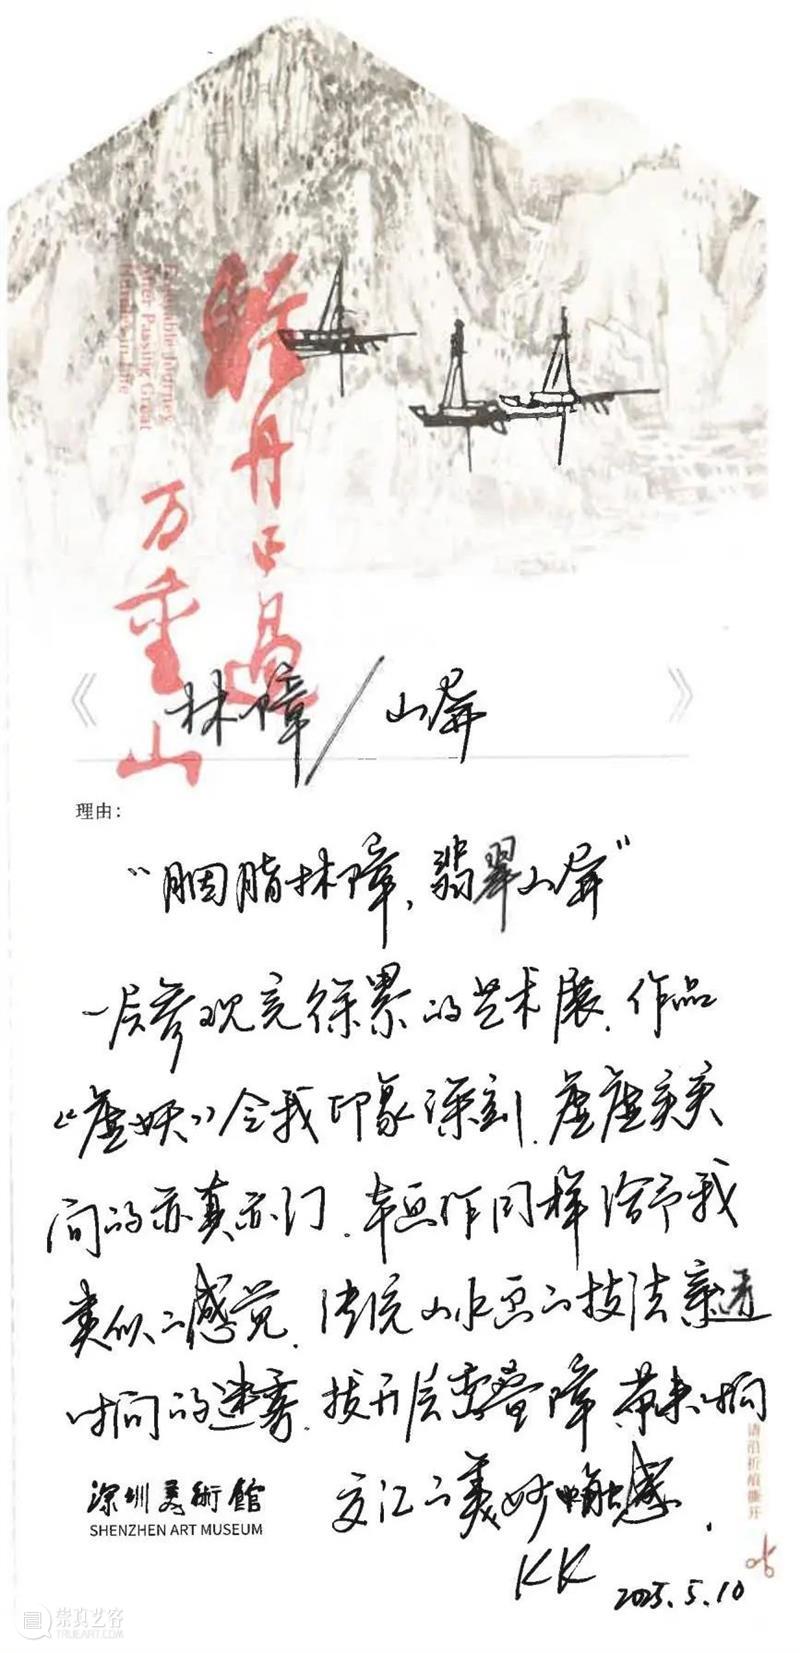 Enjoyable Journey
After Passing Great
Hurdles in Life
轻舟已過
万重山
《林障/山屏》
理由：
“胭脂林障，翡翠山屏”
一层参观完徐累的艺术展，作品
《虚妖》令我印象深刻，虚虚实实
间的亦真亦幻，本画作同样给予我
类似的感觉，传统山水画的技法穿透
时间的迷雾，拨开层峦叠障，带来时间
交汇的美妙触感。
KK
2025.5.10
深圳美術館
SHENZHEN ART MUSEUM
请沿折痕撕开
崇真艺客
TRUEART.COM